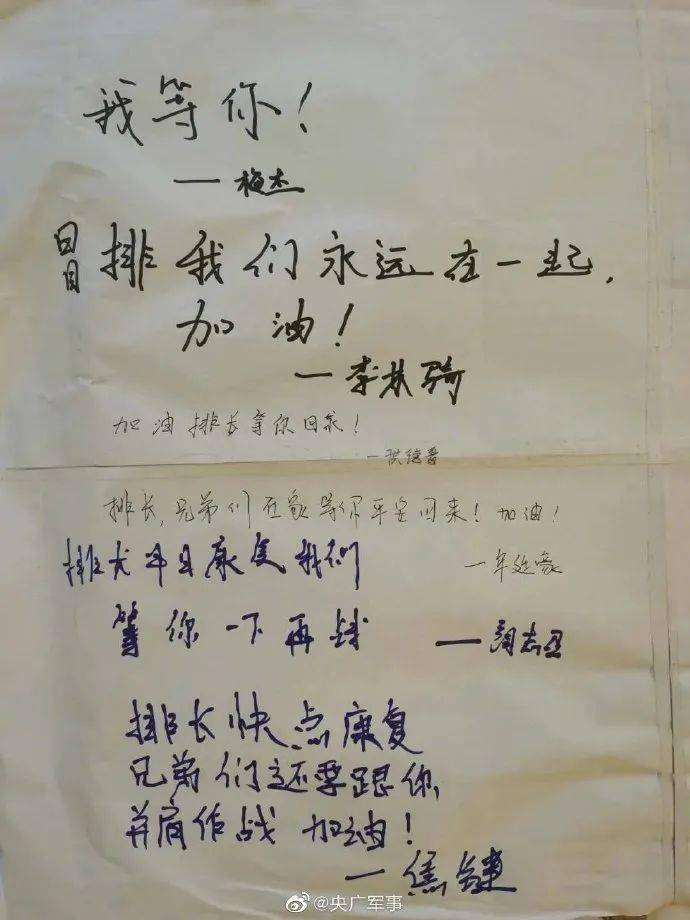 我等你！
—梅杰
排我们永远在一起，
加油！
—李林骑
加油排长等你回来！
排长，兄弟们在家等你平安回来！加油！
排长早日康复我们
等你一下再战
排长快点康复
兄弟们还要跟你
并肩作战 加油！
—焦健
@央广军事